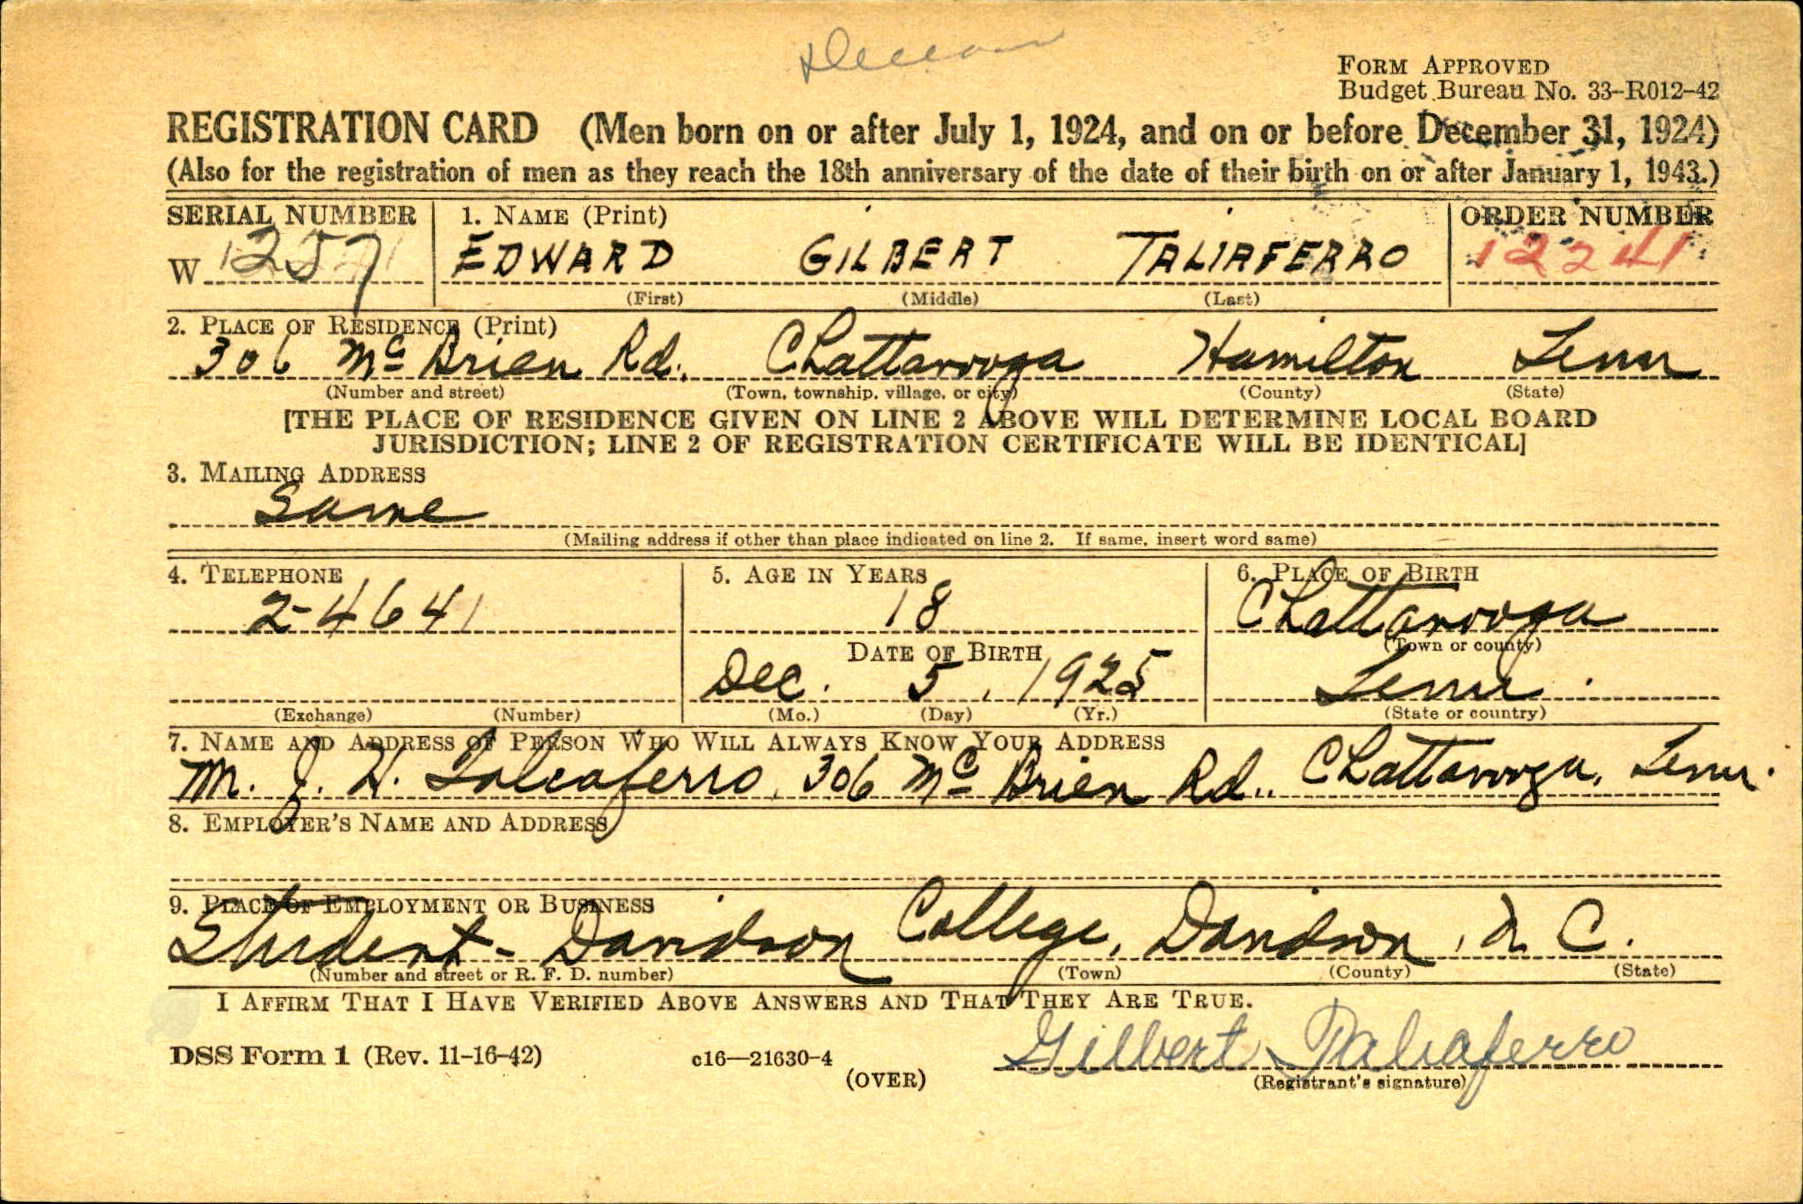 FORM APPROVED
Budget Bureau No. 33-R012-42
REGISTRATION CARD (Men born on or after July 1, 1924, and on or before December 31, 1924)
(Also for the registration of men as they reach the 18th anniversary of the date of their birth on or after January 1, 1943.)
SERIAL NUMBER 1. NAME (Print) ORDER NUMBER
W 1257 EDWARD GILBERT TALIAFERRO 12241
(First) (Middle) (Last)
2. PLACE OF RESIDENCE (Print)
306 Mc Brien Rd. Chattanooga Hamilton Tenn
(Number and street) (Town, township, village, or city) (County) (State)
[THE PLACE OF RESIDENCE GIVEN ON LINE 2 ABOVE WILL DETERMINE LOCAL BOARD
JURISDICTION; LINE 2 OF REGISTRATION CERTIFICATE WILL BE IDENTICAL]
3. MAILING ADDRESS
Same
(Mailing address if other than place indicated on line 2. If same, insert word same)
4. TELEPHONE 5. AGE IN YEARS 6. PLACE OF BIRTH
2-4641 18 Chattanooga
DATE OF BIRTH (Town or county)
Dec. 5, 1925 Tenn.
(Exchange) (Number) (Mo.) (Day) (Yr.) (State or country)
7. NAME AND ADDRESS OF PERSON WHO WILL ALWAYS KNOW YOUR ADDRESS
M. J. H. Taliaferro, 306 Mc Brien Rd., Chattanooga, Tenn.
8. EMPLOYER'S NAME AND ADDRESS
9. PLACE OF EMPLOYMENT OR BUSINESS
Student - Davidson College, Davidson, N C.
(Number and street or R. F. D. number) (Town) (County) (State)
I AFFIRM THAT I HAVE VERIFIED ABOVE ANSWERS AND THAT THEY ARE TRUE.
Gilbert Taliaferro
DSS Form 1 (Rev. 11-16-42) c16—21630-4
(OVER) (Registrant's signature)